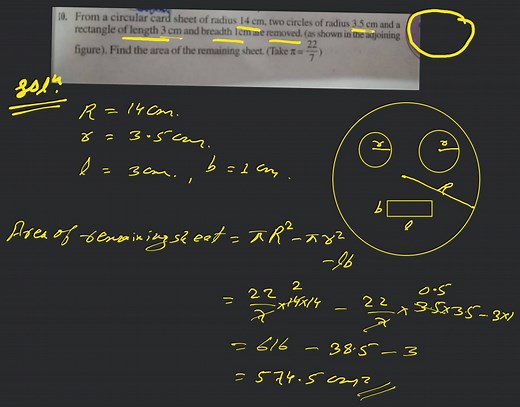 10. From a circular card sheet of radius 14 cm, two circles of radius 3.5 cm and a
rectangle of length 3 cm and breadth 1cm are removed. (as shown in the adjoining
figure). Find the area of the remaining sheet. (Take π = 22/7)
Solⁿ.
R = 14 cm.
r = 3.5 cm.
l = 3 cm., b = 1 cm.
r r
R
b
l
Area of remaining sheet = πR² - πr²
- lb
= 22/7 × 14 × 14 2 - 22/7 × 3.5 × 3.5 - 3×1 0.5
= 616 - 38.5 - 3
= 574.5 cm²